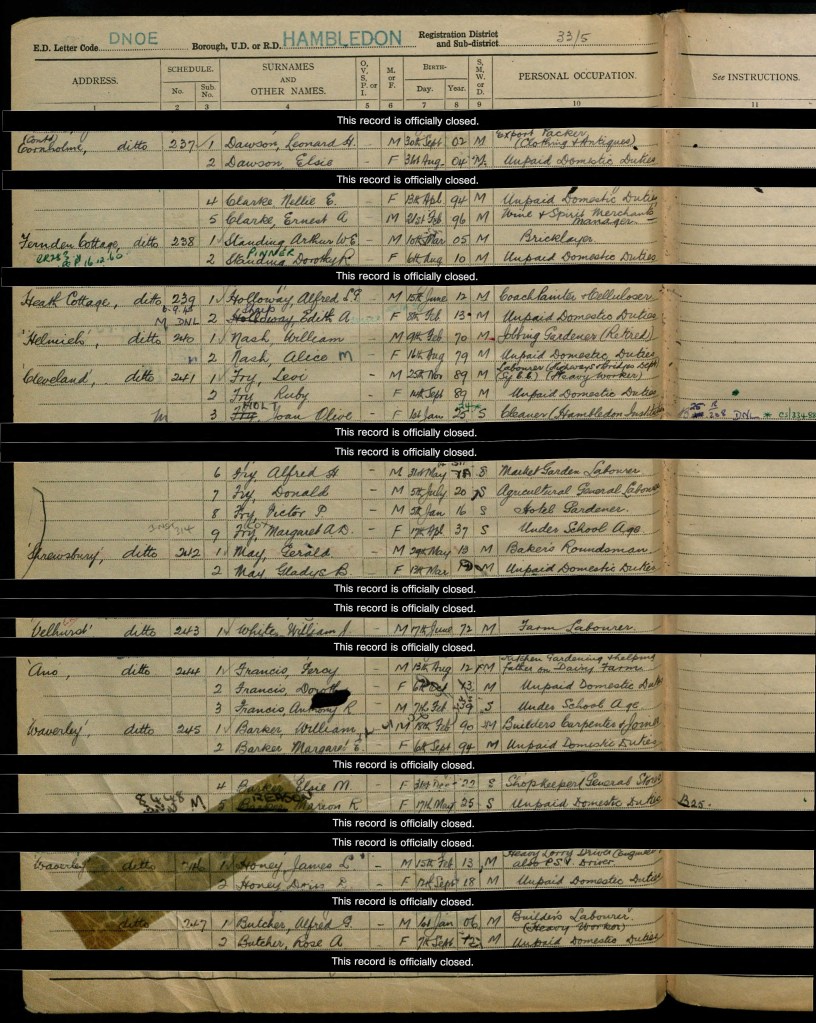 E.D. Letter Code DNOE Borough, U.D. or R.D. HAMBLEDON Registration District and Sub-district 33/5
ADDRESS. SCHEDULE. No. Sub. No. SURNAMES AND OTHER NAMES. O, V, S, P, or I. M. or F. BIRTH— Day. Year. S, M, W, or D. PERSONAL OCCUPATION. See INSTRUCTIONS.
1 2 3 4 5 6 7 8 9 10 11
This record is officially closed.
(Contd) Export Packer
Cornholme, ditto 237 1 Dawson, Leonard H. - M 30th Sept 02 M (Clothing & Antiques)
2 Dawson, Elsie - F 31st Aug 04 M Unpaid Domestic Duties
This record is officially closed.
4 Clarke, Nellie E. F 13th Apl. 94 M Unpaid Domestic Duties
5 Clarke, Ernest A M 21st Feb 96 M Wine & Spirit Merchants Manager
Fernden Cottage, ditto 238 1 Standing Arthur W E - M 10th Mar 05 M Bricklayer
PINNER
2 Standing Dorothy R - F 6th Aug 10 M Unpaid Domestic Duties
This record is officially closed.
Heath Cottage, ditto 239 1 Holloway, Alfred L.F. - M 15th June 12 M Coach Painter & Celluloser
M DNL 2 Holloway, Edith A. - F 8th Feb 13 M Unpaid Domestic Duties
'Helmich', ditto 240 1 Nash, William - M 9th Feb 70 M Jobbing Gardener (Retired)
2 Nash, Alice M - F 16th Aug 79 M Unpaid Domestic Duties
'Cleveland', ditto 241 1 Fry, Levi - M 25th Nov 89 M Labourer (Highways & Bridges Dept) (Heavy Worker)
2 Fry, Ruby - F 14th Sept 89 M Unpaid Domestic Duties
HOLT
m 3 Fry, Joan Olive - F 1st Jan 25 S Cleaner (Hambledon Institu DNL
This record is officially closed.
This record is officially closed.
6 Fry, Alfred H - M 31st May 18 S Market Garden Labourer
7 Fry, Donald - M 5th July 20 S Agricultural General Labour
8 Fry, Victor P. - M 5th Jan 16 S Hotel Gardener.
9 Fry, Margaret A.D. - F 17th Apl 37 S Under School Age
'Shrewsbury', ditto 242 1 May, Gerald - M 29th May 13 M Bakers Roundsman
2 May Gladys B. F 13th Mar M Unpaid Domestic Duties
This record is officially closed.
This record is officially closed.
'Velhurst' ditto 243 1 White, William J. - M 7th June 72 M Farm Labourer.
This record is officially closed.
'Ano, ditto 244 1 Francis, Percy - M 13th Aug 12 M Kitchen Gardening & helping father on Dairy Farm
2 Francis, Doroth - F 6th Oct 13 M Unpaid Domestic Dut
3 Francis, Anthony R - M 7th Feb 39 S Under School Age
'Waverley', ditto 245 1 Barker, William M 90 M Builders Carpenter & Joine
2 Barker Margaret E. - F 6th Sept 94 M Unpaid Domestic Duties
This record is officially closed.
4 Barker Elsie M. F 31st 22 S Shopkeeper General Store
M 5 Marion R F 17th May 25 S Unpaid Domestic Duties B25.
This record is officially closed.
This record is officially closed.
'Waverley' ditto 246 1 Honey James L - M 15th Feb 13 M Heavy Lorry Driver also PSV Driver
2 Honey Doris - F 12th Sept 18 M Unpaid Domestic Duties
This record is officially closed.
ditto 247 1 Butcher, Alfred G. - M 1st Jan 06 M Builders Labourer. (Heavy Worker)
2 Butcher, Rose A F 7th Sept 12 M Unpaid Domestic Duties
This record is officially closed.